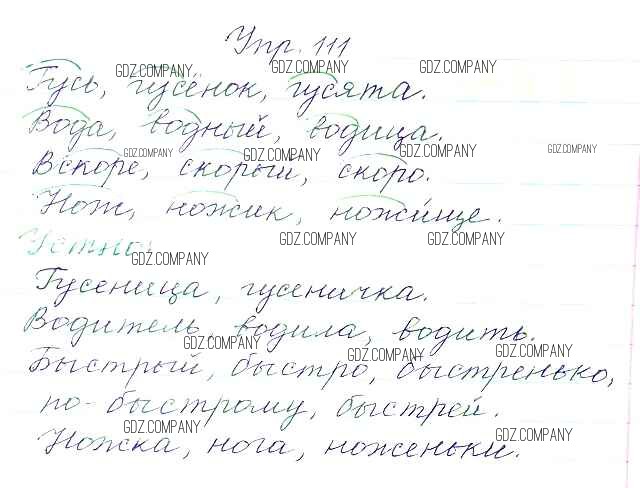 Упр. 111
GDZ.COMPANY GDZ.COMPANY GDZ.COMPANY
Гусь, гусёнок, гусята.
Вода, водный, водица.
GDZ.COMPANY GDZ.COMPANY GDZ.COMPANY GDZ.COMPANY
Вскоре, скорый, скоро.
Нож, ножик, ножище.
Устно
GDZ.COMPANY GDZ.COMPANY GDZ.COMPANY
Гусеница, гусеничка.
Водитель, водила, водить.
GDZ.COMPANY GDZ.COMPANY GDZ.COMPANY
Быстрый, быстро, быстренько,
по-быстрому, быстрей.
GDZ.COMPANY GDZ.COMPANY
Ножка, нога, ноженьки.